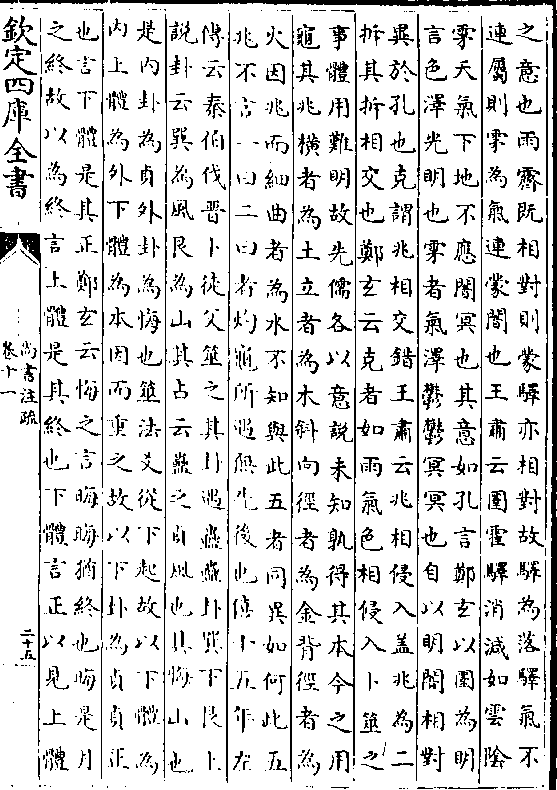 之意也雨霽既相對則蒙驛亦相對故驛為落驛氣不
連屬則雺為氣連蒙闇也王肅云圛霍驛消減如雲陰
雺天氣下地不應闇冥也其意如孔言鄭玄以圛為明
言色澤光明也雺者氣澤鬱鬱冥冥也自以明闇相對
異於孔也克謂兆相交錯王肅云兆相侵入盖兆為二
拆其拆相交也鄭玄云克者如雨氣色相侵入卜筮之
事體用難明故先儒各以意說未知孰得其本今之用
龜其兆橫者為土立者為木斜向徑者為金背徑者為
火因兆而細曲者為水不知與此五者同異如何此五
兆不言一曰二曰者灼龜所遇無先後也僖十五年左
傳云秦伯伐晉卜徒父筮之其卦遇蠱蠱卦巽下艮上
說卦云巽為風艮為山其占云蠱之貞風也其悔山也
是內卦為貞外卦為悔也筮法爻從下起故以下體為
內上體為外下體為本因而重之故以下卦為貞貞正
也言下體是其正鄭玄云悔之言晦晦猶終也晦是月
之終故以為終言上體是其終也下體言正以見上體
欽定四庫全書
尚書注疏
卷十一
二十五